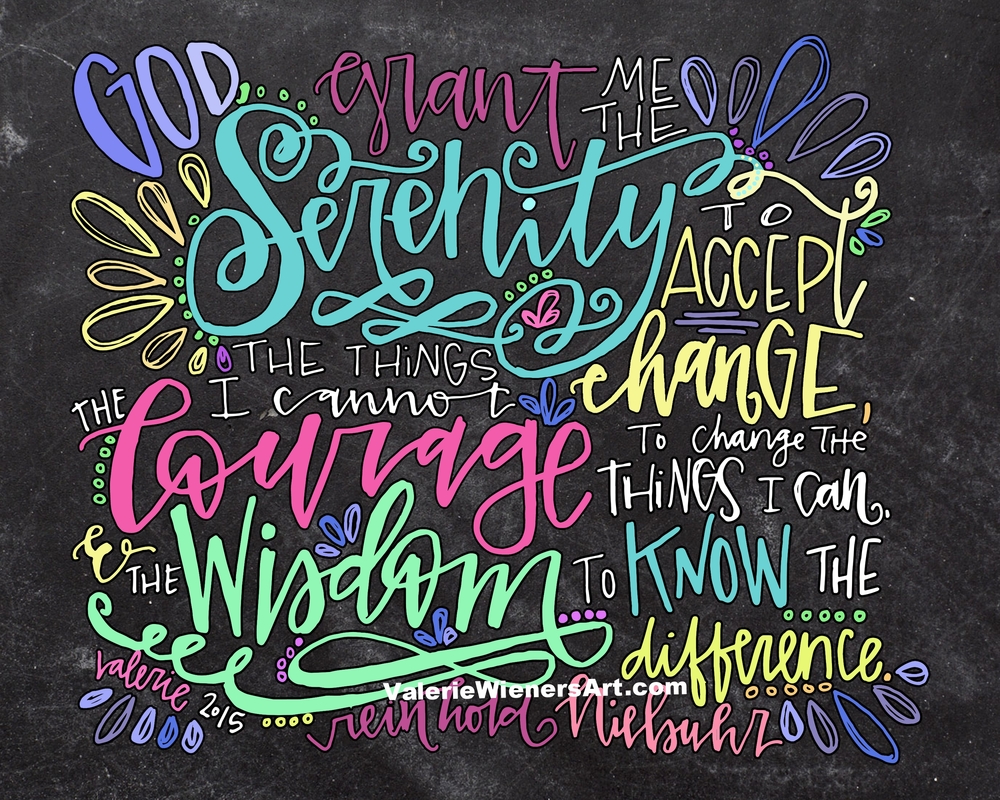 GOD grant ME
THE
Serenity
TO
ACCEPT
THE THINGS
I cannot
change,
THE
Courage
To change THE
THINGS I can,
& THE Wisdom
TO KNOW THE
difference.
valerie
2015
ValerieWienersArt.com
reinhold Niebuhr